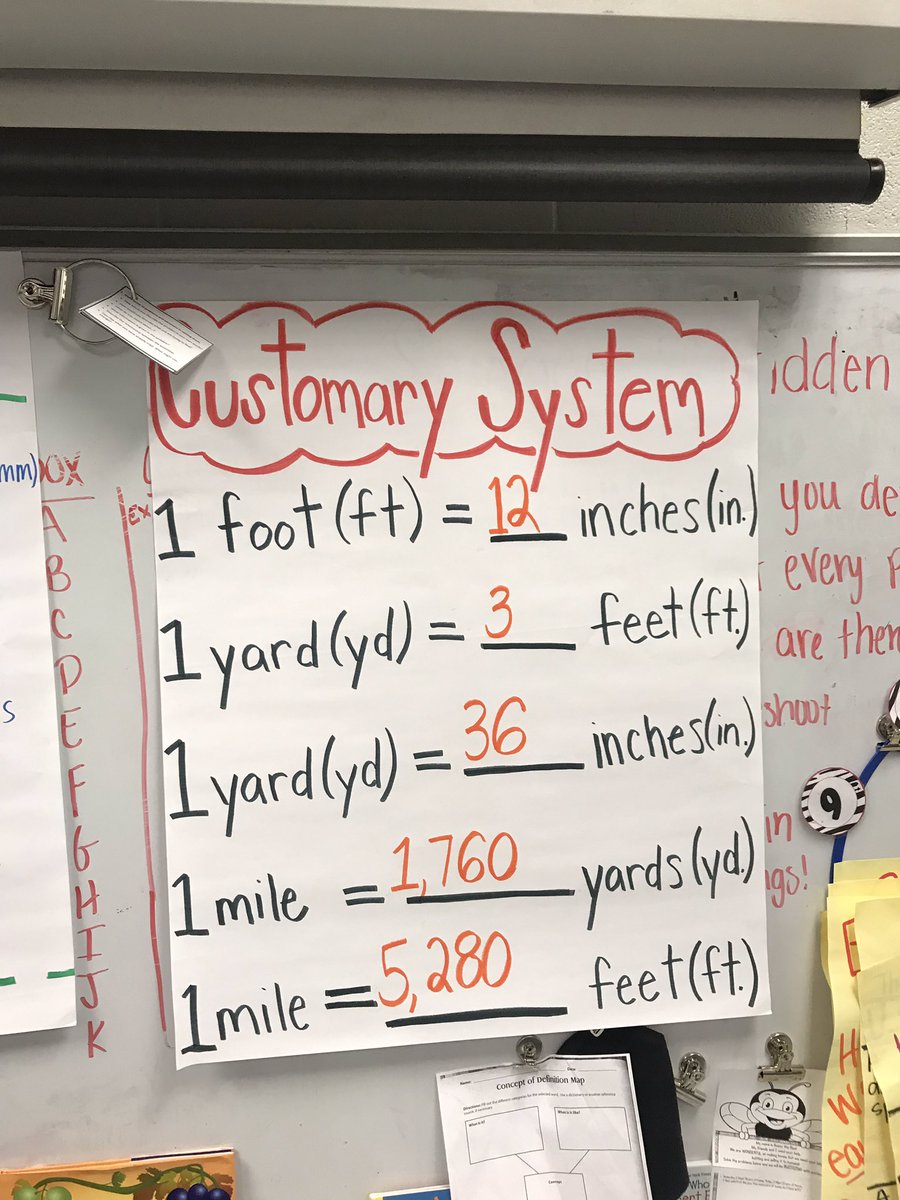 Customary System
1 foot (ft) = 12 inches (in.)
1 yard (yd) = 3 feet (ft.)
1 yard (yd) = 36 inches (in.)
1 mile = 1,760 yards (yd.)
1 mile = 5,280 feet (ft.)
mm)
s
A
B
C
D
E
F
G
H
I
J
K
Ex
you de
every
are then
shoot
in
9
Name:
Date
Concept of Definition Map
What is it?
What is it like?
Concept
Who